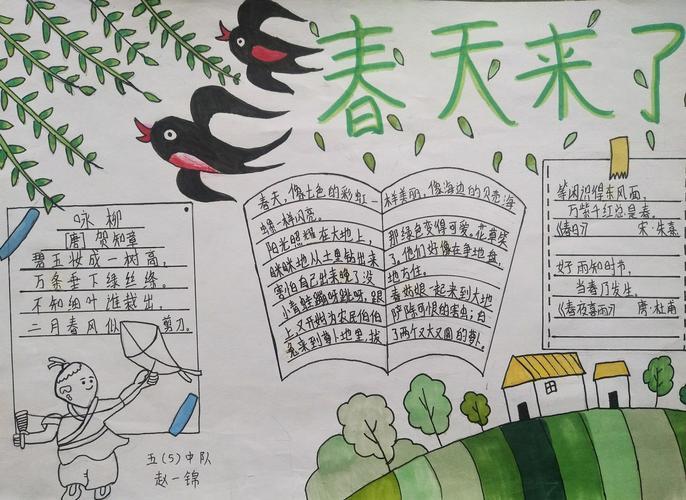 春天来了
咏柳
[唐] 贺知章
碧玉妆成一树高,
万条垂下绿丝绦。
不知细叶谁裁出,
二月春风似 剪刀。
五(5)中队
赵一锦
春天,像七色的彩虹一样美丽,像海边的贝壳海
一样闪亮。
阳光照耀在大地上,那绿色变得可爱。花草笑
眯眯地从土里钻出来了,他们好像在争地盘,
害怕自己起来晚了没地方住。
小青蛙蹦呀跳呀,跟春姑娘一起来到大地
上,又开始为农民伯伯铲除可恨的害虫;白
兔来到萝卜地里,拔了两个又大又圆的萝卜。
等闲识得东风面,
万紫千红总是春。
《春日》 宋·朱熹
好雨知时节,
当春乃发生。
《春夜喜雨》 唐·杜甫